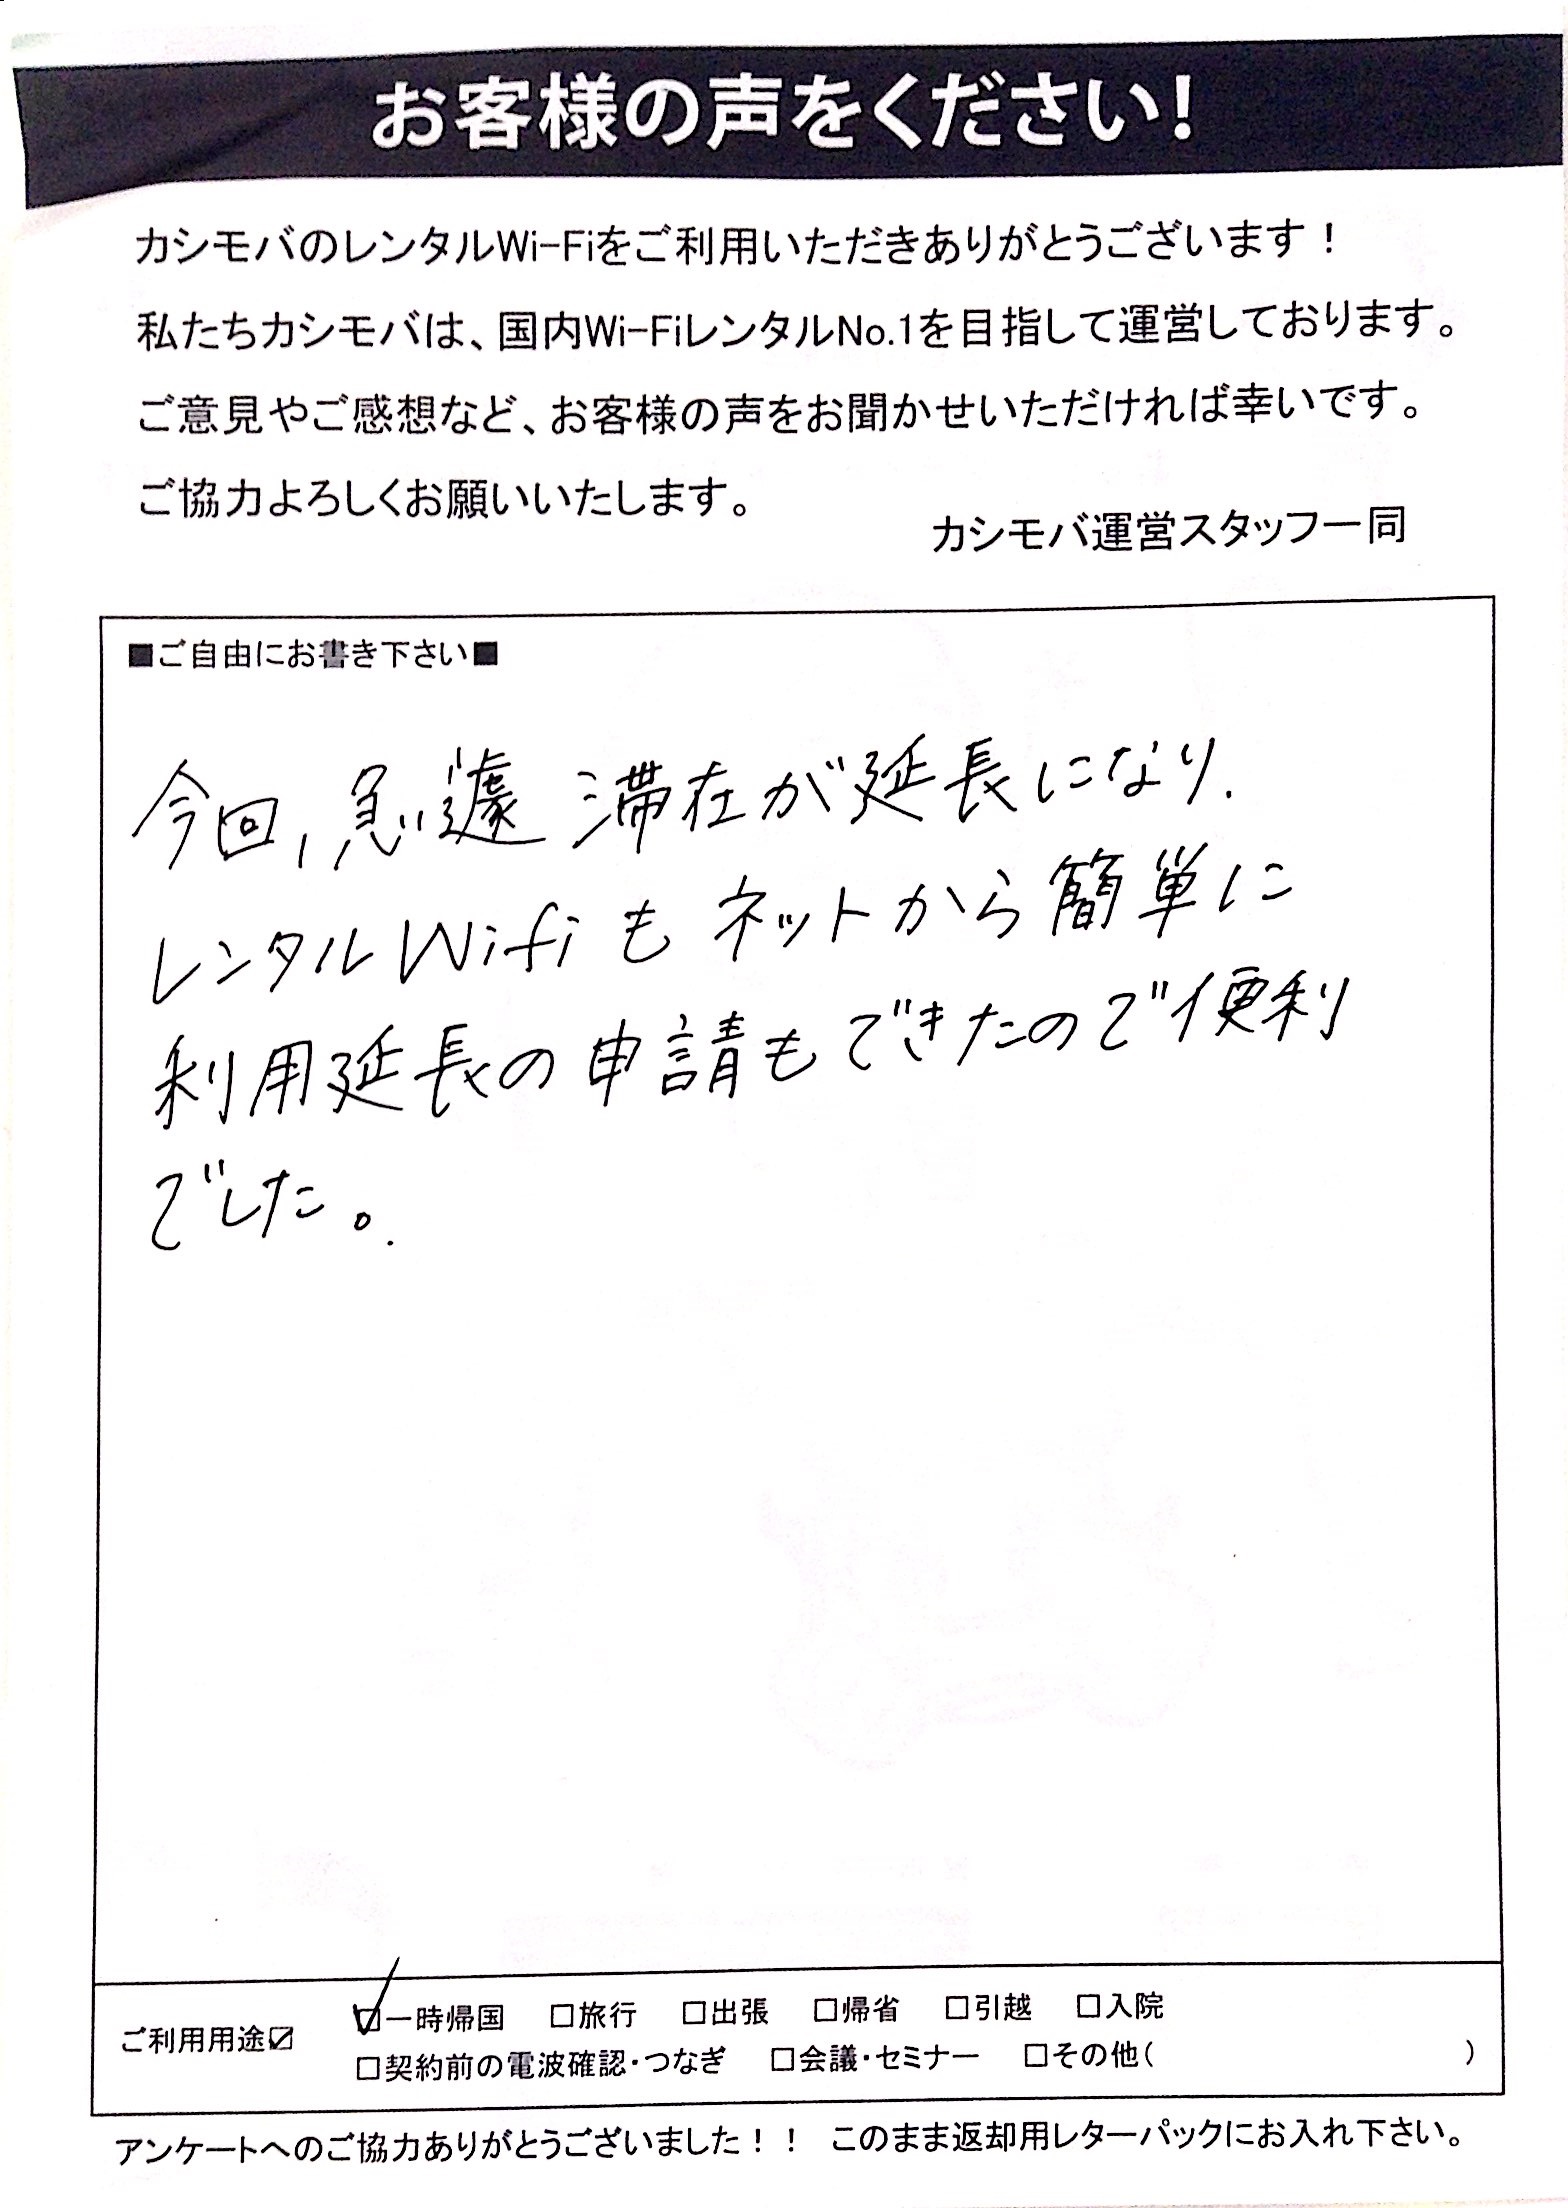 お客様の声をください!
カシモバのレンタルWi-Fiをご利用いただきありがとうございます！
私たちカシモバは、国内Wi-FiレンタルNo.1を目指して運営しております。
ご意見やご感想など、お客様の声をお聞かせいただければ幸いです。
ご協力よろしくお願いいたします。
カシモバ運営スタッフ一同
■ご自由にお書き下さい■
今回,急遽 滞在が延長になり.
レンタルWifiもネットから簡単に
利用延長の申請もできたので便利
でした。
ご利用用途☑ ☑一時帰国 □旅行 □出張 □帰省 □引越 □入院
□契約前の電波確認・つなぎ □会議・セミナー □その他( )
アンケートへのご協力ありがとうございました！！ このまま返却用レターパックにお入れ下さい。